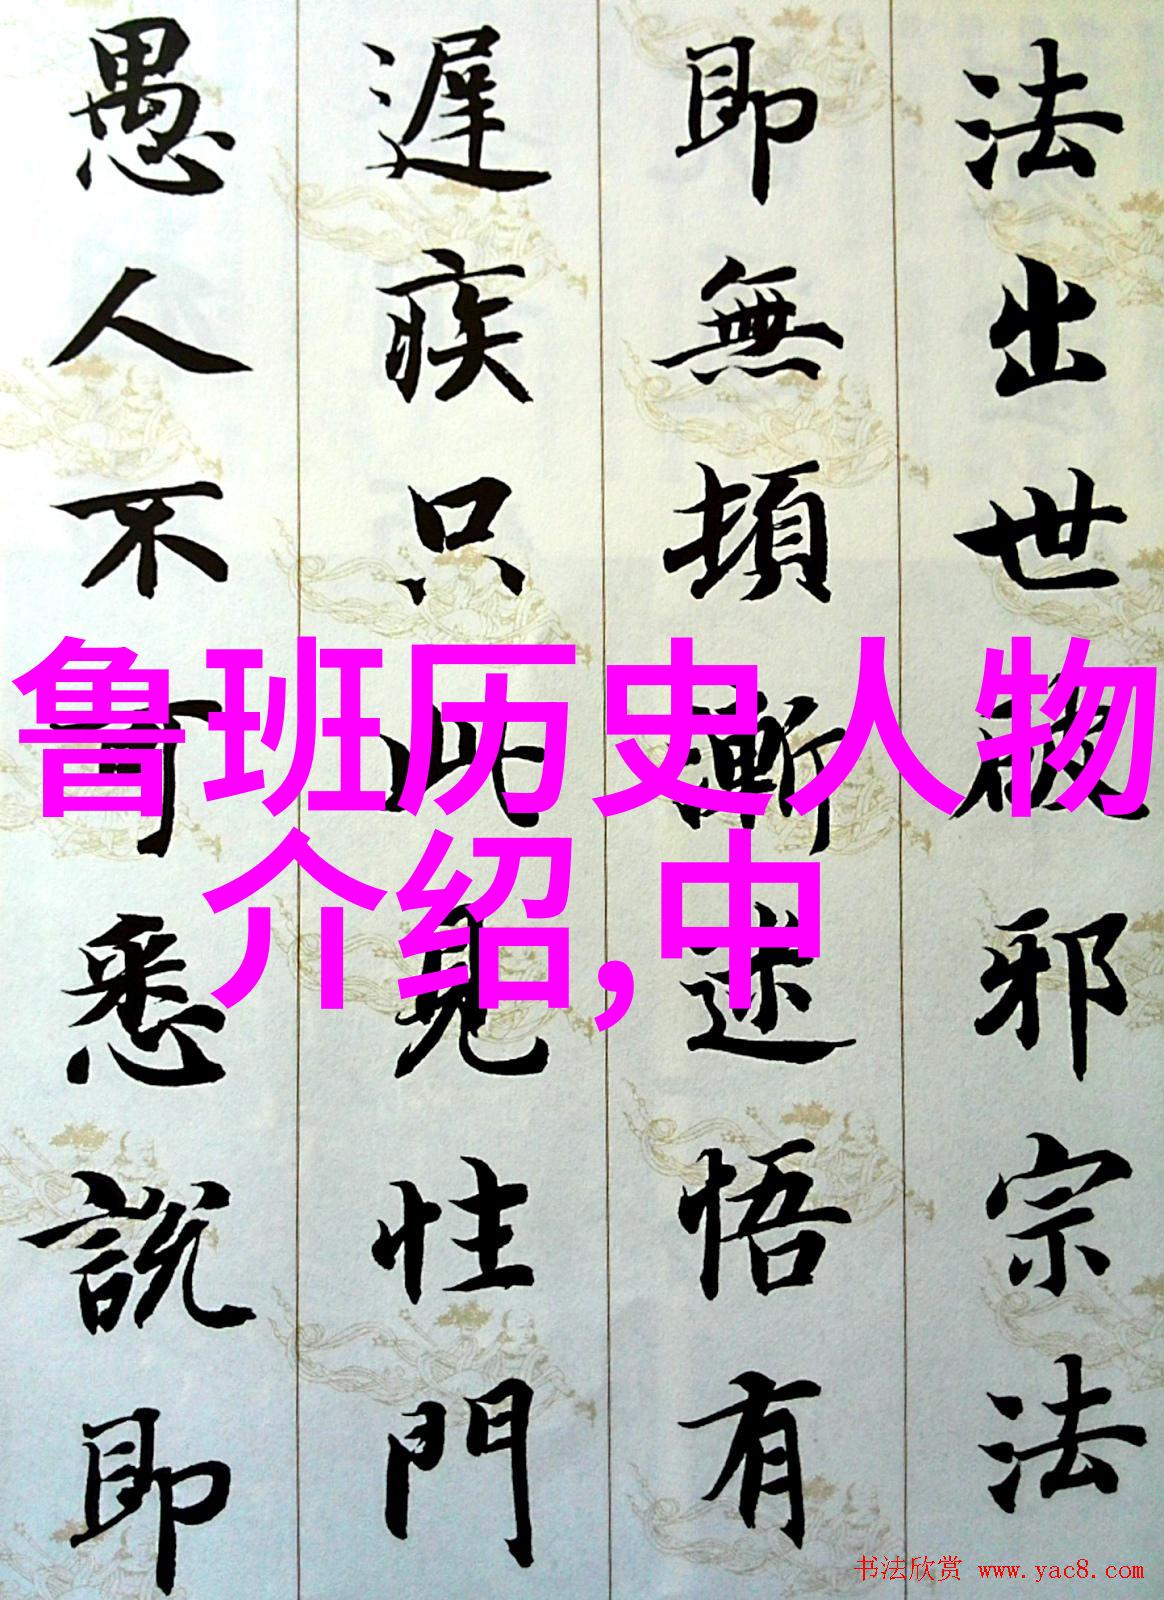 法出世破邪宗法
即無頓漸迷悟有
遲疾只此見性門
愚人不可悉說即
鲁班历史人物
介绍,中
书法欣赏 www.yac8.com